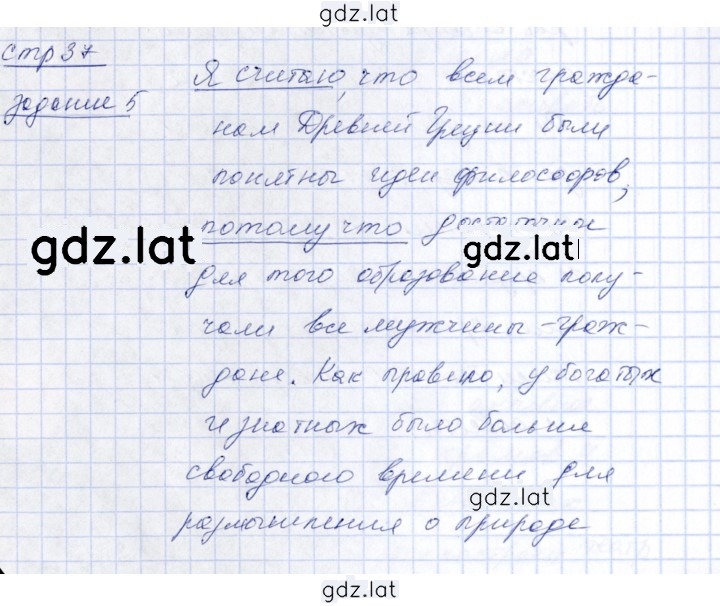 gdz.lat
стр 37
задание 5
Я считаю, что всем гражда-
нам Древней Греции были
понятны идеи философов,
потому что достаточное
gdz.lat
gdz.lat
для того образование полу-
чали все мужчины-граж-
дане. Как правило, у богатых
и знатных было больше
свободного времени для
gdz.lat
размышления о природе
gdz.lat